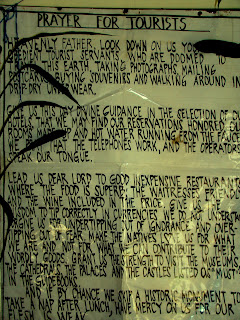 PRAYER FOR TOURISTS
HEAVENLY FATHER, LOOK DOWN ON US YOUR
OBEDIENT TOURIST SERVANTS WHO ARE DOOMED TO
TAKING PHOTOGRAPHS, MAILING
BUYING SOUVENIRS AND WALKING AROUND IN
DRIP-DRY UNDERWEAR.
US THIS DAY DIVINE GUIDANCE IN THE SELECTION OF OUR
FIND OUR RESERVATIONS HONORED, OUR
ROONS MADE UP AND HOT WATER RUNNING FROM THE
THAT THE TELEPHONES WORK, AND THE OPERATORS
SPEAK OUR TONGUE.
LEAD US DEAR LORD TO GOOD INEXPENSIVE RESTAURANTS
WHERE THE FOOD IS SUPERB, THE WAITRESSES
AND THE WINE INCLUDED IN THE PRICE. GIVE US THE
WISDOM TO TIP CORRECTLY IN CURRENCIES WE DO NOT
FORGIVE US FOR UNDERTIPPING OUT OF IGNORANCE AND OVER-
TIPPING OUT OF FEAR. MAKE THE NATIVES LOVE US FOR WHAT
WE ARE AND NOT FOR WHAT WE CAN CONTRIBUTE TO THEIR
WORLDLY GOODS. GRANT US THE STRENGTH TO VISIT THE MUSEUMS
THE CATHEDRALS THE PALACES AND THE CASTLES LISTED AS "MUST"
THE GUIDEBOOKS.
AND IF BY CHANCE WE SKIP A HISTORIC MONUMENT TO
TAKE A NAP AFTER LUNCH, HAVE MERCY ON US FOR OUR